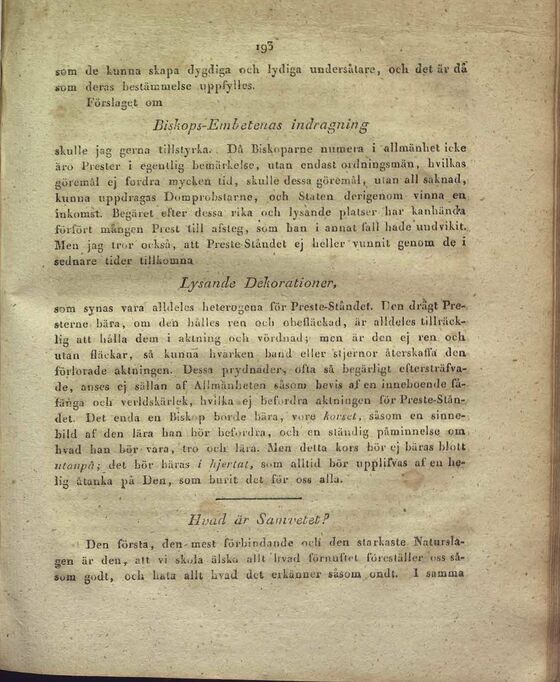 193
som de kunna skapa dygdiga och lydiga undersåtare, och det är då
som deras bestämmelse uppfylles.
Förslaget om
Biskops-Embetenas indragning
skulle jag gerna tillstyrka. Då Biskoparne numera i allmänhet icke
äro Prester i egentlig bemärkelse, utan endast ordningsmän, hvilkas
göremål ej fordra mycken tid, skulle dessa göremål, utan all saknad,
kunna uppdragas Domprobstarne, och Staten derigenom vinna en
inkomst. Begäret efter dessa rika och lysande platser har kanhända
förfört mången Prest till afsteg, som han i annat fall hade undvikit.
Men jag tror också, att Preste-Ståndet ej heller vunnit genom de i
sednare tider tillkomna
Lysande Dekorationer,
som synas vara alldeles heterogena för Preste-Ståndet. Den drägt Pre-
sterne bära, om den hålles ren och obefläckad, är alldeles tillräck-
lig att hålla dem i aktning och vördnad; men är den ej ren och
utan fläckar, så kunna hvarken band eller stjernor återskaffa den
förlorade aktningen. Dessa prydnader, ofta så begärligt eftersträfva-
de, anses ej sällan af Allmänheten såsom bevis af en inneboende få-
fänga och verldskärlek, hvilka ej befordra aktningen för Preste-Stån-
det. Det enda en Biskop borde bära, vore korset, såsom en sinne-
bild af den lära han bör befordra, och en ständig påminnelse om
hvad han bör vara, tro och lära. Men detta kors bör ej bäras blott
utanpå; det bör bäras i hjertat, som alltid bör upplifvas af en he-
lig åtanka på Den, som burit det för oss alla.
Hvad är Samvetet?
Den första, den mest förbindande och den starkaste Natursla-
gen är den, att vi skola älska allt hvad förnuftet föreställer oss så-
som godt, och hata allt hvad det erkänner såsom ondt. I samma